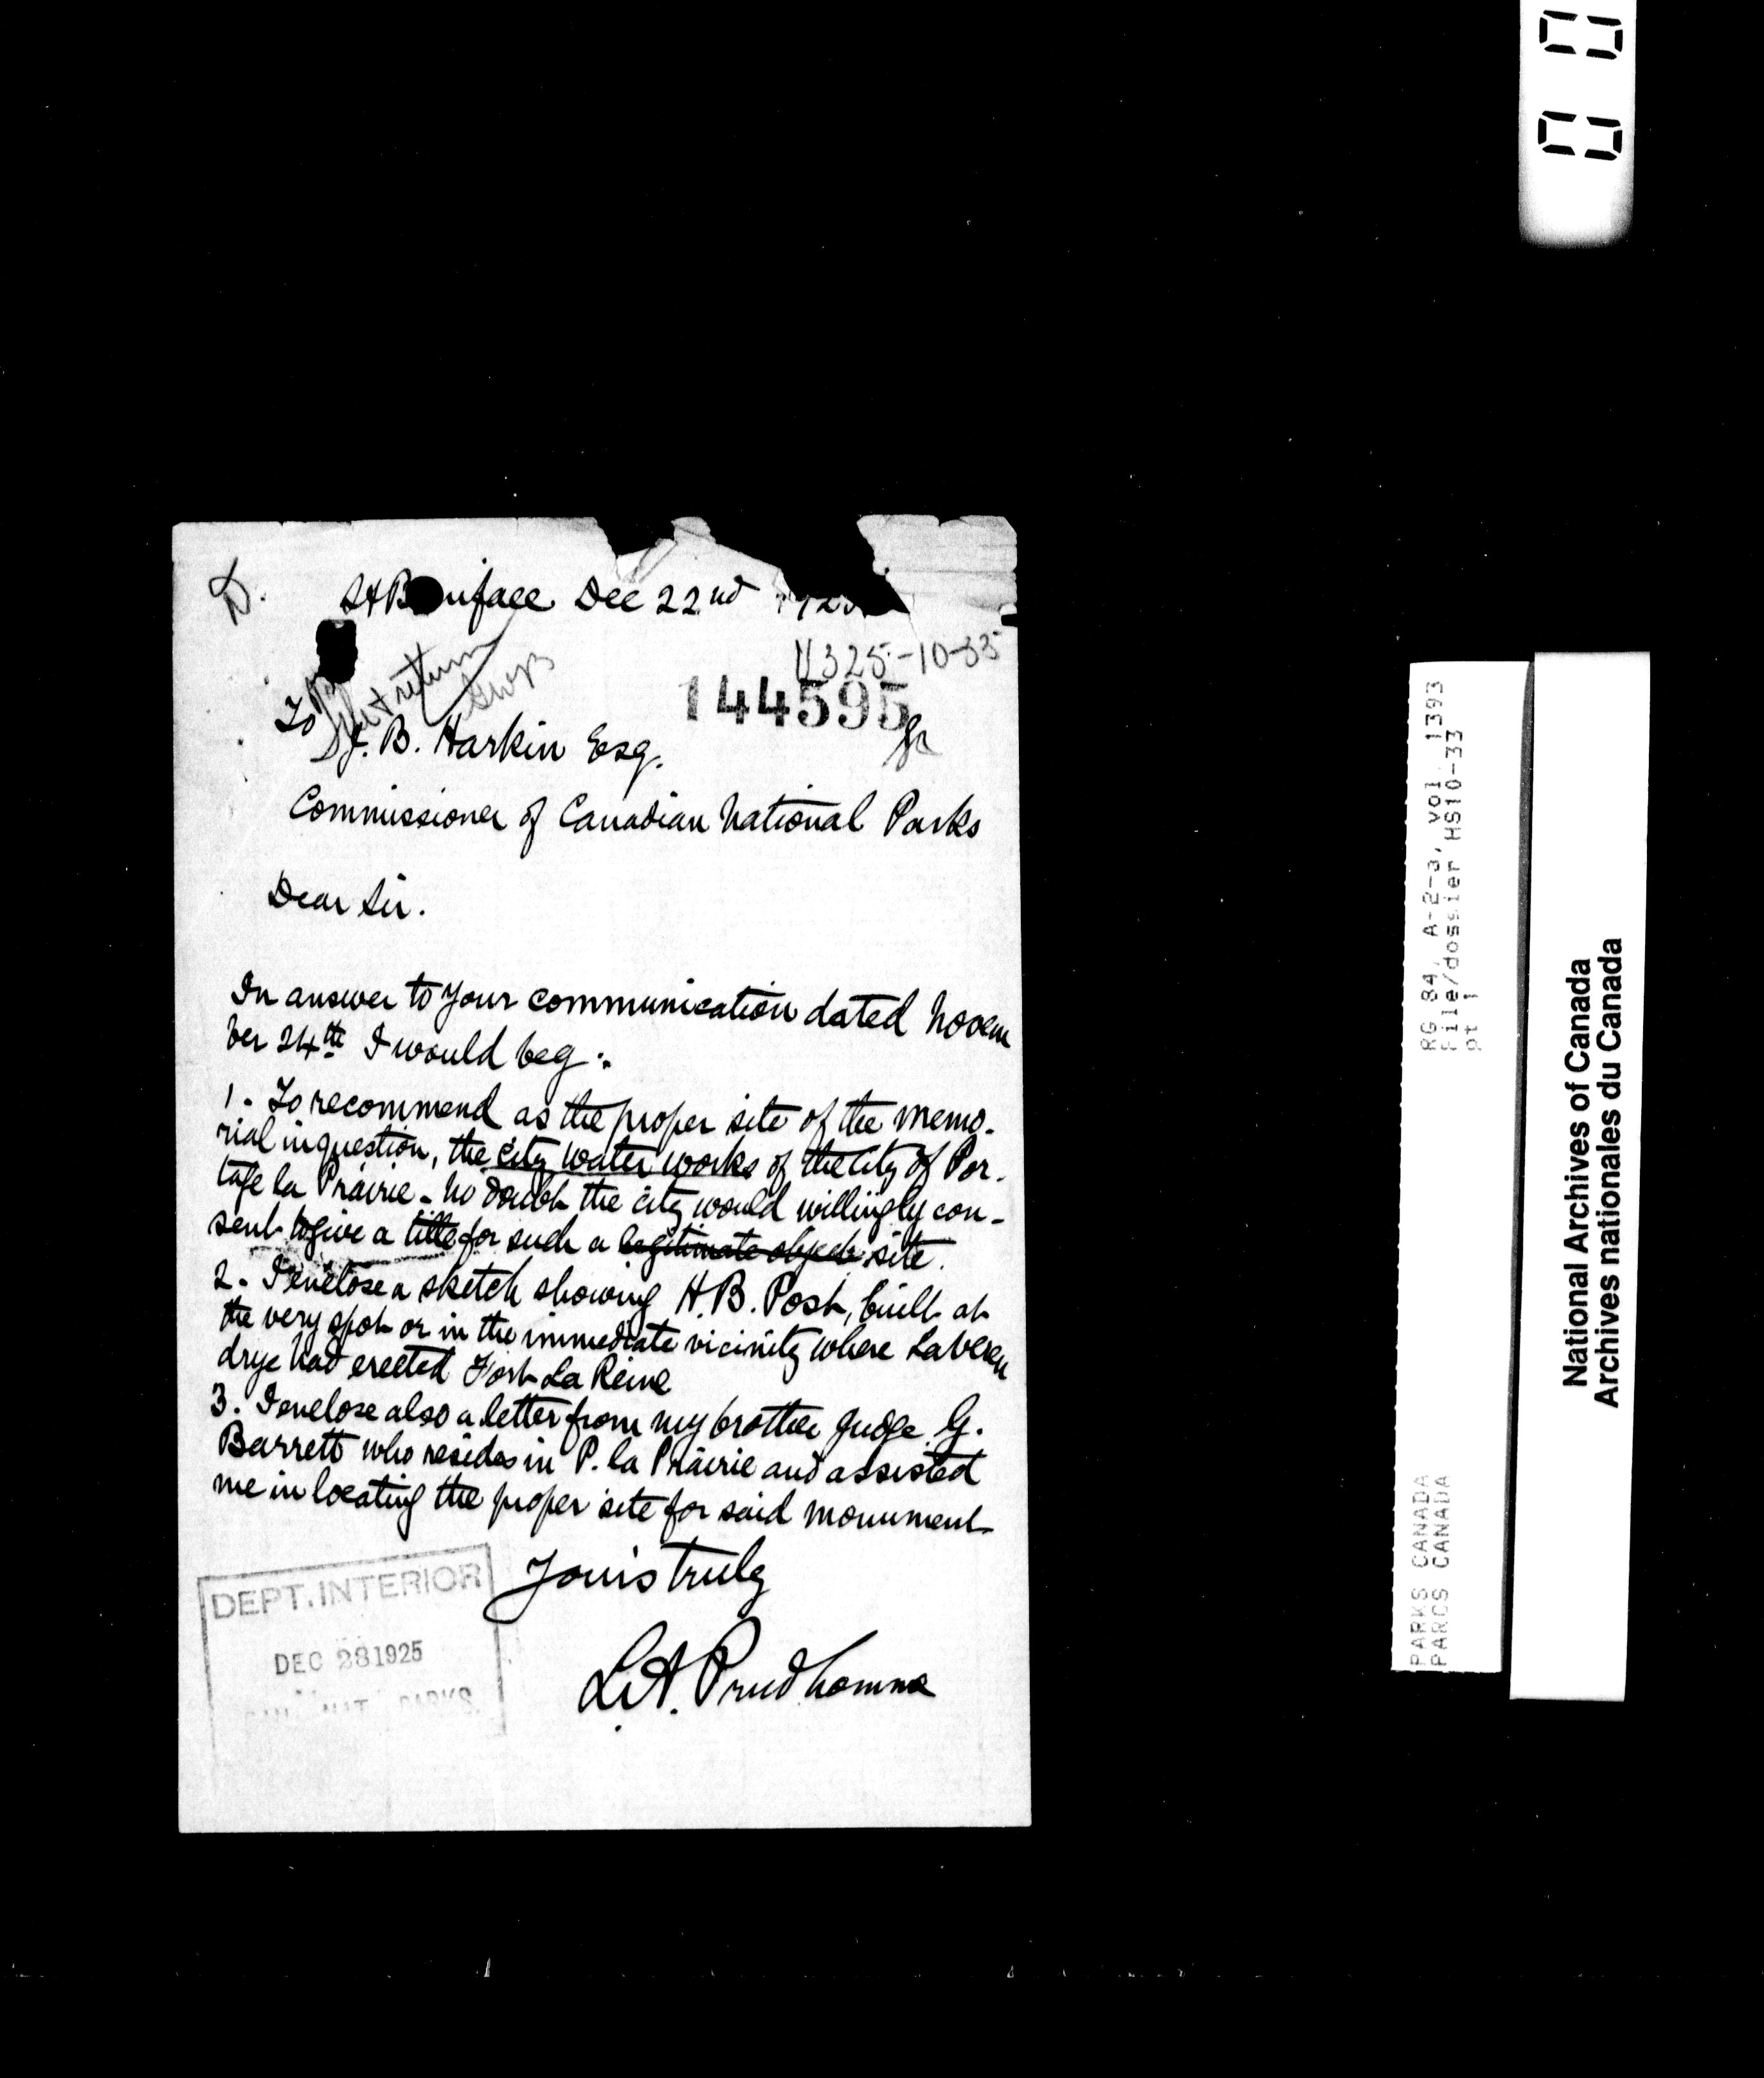 D.
St Boniface Dec 22nd 1925
U325-10-33
144595
& return
To
J. B. Harkin Esq.
Commissioner of Canadian National Parks
Dear Sir.
In answer to your communication dated Novem
ber 24th I would beg :.
1. To recommend as the proper site of the memo-
rial in question, the city water works of the City of Por-
tage la Prairie - no doubt the city would willingly con-
sent to give a title for such a legitimate object site.
2. I enclose a sketch showing H.B. Post, built at
the very spot or in the immediate vicinity where Laveren
drye had erected Fort La Reine
3. I enclose also a letter from my brother Judge G.
Barrett who resides in P. la Prairie and assisted
me in locating the proper site for said monument
Yours truly
L.A. Prudhomme
DEPT. INTERIOR
DEC 28 1925
NAT. PARKS.
RG 84, A-2-a, vol. 1393
File/dossier HS10-33
pt 1
PARKS CANADA
PARCS CANADA
National Archives of Canada
Archives nationales du Canada